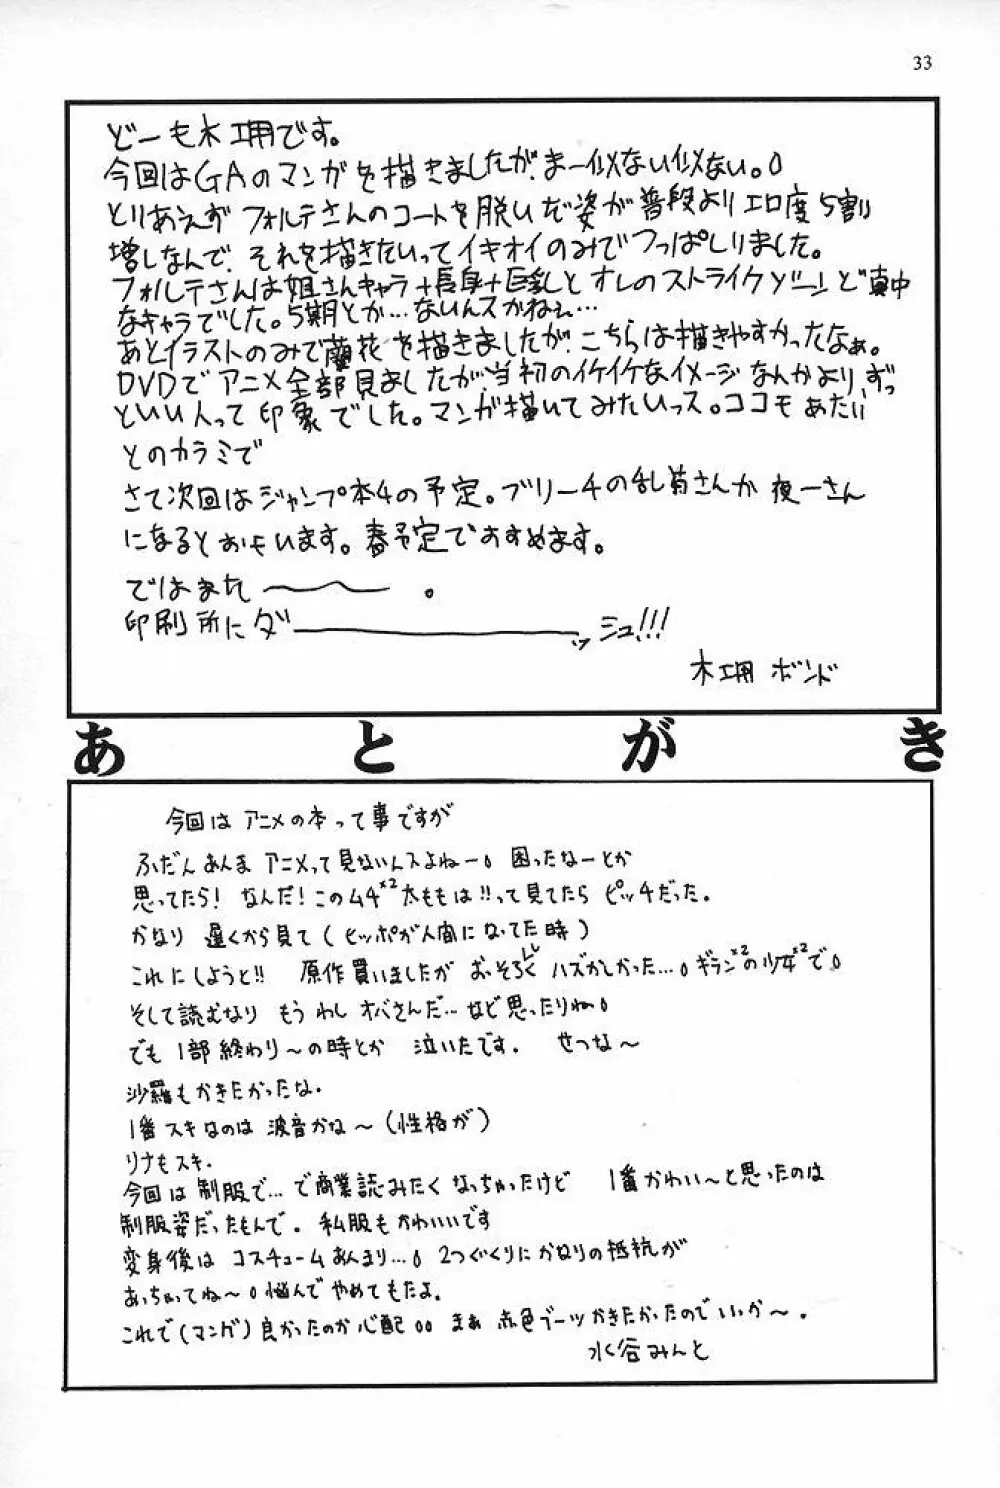 33
どーも木工用です。
今回はGAのマンガを描きましたが、まー似ない似ない。
とりあえず フォルテさんのコートを脱いだ姿が普段よりエロ度5割
増しなんで、それを描きたいってイキオイのみでつっぱしりました。
フォルテさんは姐さんキャラ+長身+巨乳と オレのストライクゾーンど真中
なキャラでした。5期とか…ないんスかねぇ…
あとイラストのみで蘭花を描きましたが、こちらは描きやすかったなぁ。
DVDでアニメ全部見ましたが、当初のイケイケなイメージなんかより、ずっ
といい人って印象でした。マンガ描いてみたいっス。ココモあたり
とのカラミで
さて次回はジャンプ本4の予定。ブリーチの乱菊さんか夜一さん
になるとおもいます。春予定ですすめます。
ではまた〜。
印刷所にダーッシュ!!!
木工用ボンド
あとがき
今回はアニメの本って事ですが
ふだんあんまアニメって見ないんスよねー。困ったなーとか
思ってたら!なんだ!このムチ×2太ももは!!って見てたら ピッチだった。
かなり 遅くから見て(ヒッポが人間になってた時)
これにしようと!! 原作買いましたが おっそろしくハズかしかった…。ギラン×2の少女×2で。
そして読むなり もうわしオバさんだ…など思ったりね。
でも 1部終わり〜の時とか 泣いたです。 せつな〜
沙羅もかきたかったな.
1番スキなのは 波音かな〜(性格が)
リナもスキ.
今回は 制服で…で商業読みたくなっちゃったけど 1番かわい〜と思ったのは
制服姿だったもんで。私服もかわいいです
変身後は コスチュームあんまり…。2つぐくりにかなりの抵抗が
あっちゃってね〜。悩んで やめてもたよ.
これで(マング)良かったのか心配。。まぁ 赤色ブーツかきたかったのでいいか〜.
水谷みんと